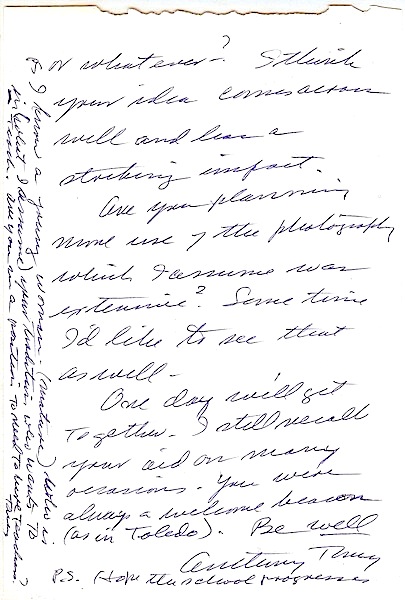 or whatever—? I think
your idea comes across
well and has a
striking impact.
Are you planning
more use of the photography
which I assume was
extensive? Some time
I'd like to see that
as well—
One day we'll get
together. I still recall
your aid on many
occasions. You were
always a welcome beacon
(as in Toledo). Be well
Anthony
P.S. (Hope the school progresses
I know a young woman (mature) who is
in (what I assume) your tradition who wants to
teach. Are you in a position to need to hire teachers?